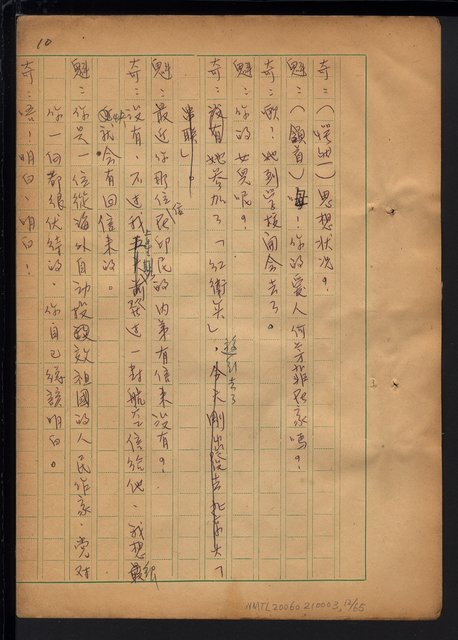 10
奇：（愕然）思想狀況？
魁：（頷首）唔！你的愛人何芳菲在家嗎？
奇：歐！她到學校開會去了。
魁：你的女兒呢？
奇：沒有她參加了「紅衛兵」，今天剛出發去北京大「
串聯」。
遊行去了
魁：最近你那位在印尼的內弟有信來沒有？
奇：沒有，不过我上星期發过一封航空信給他、我想
就会有回信來的。
魁：你是一位從海外自动投效祖國的人民作家，党对
你一向都很优待的，你自己該明白。
奇：唔！明白、明白！
NMTL20060210003, 12/65